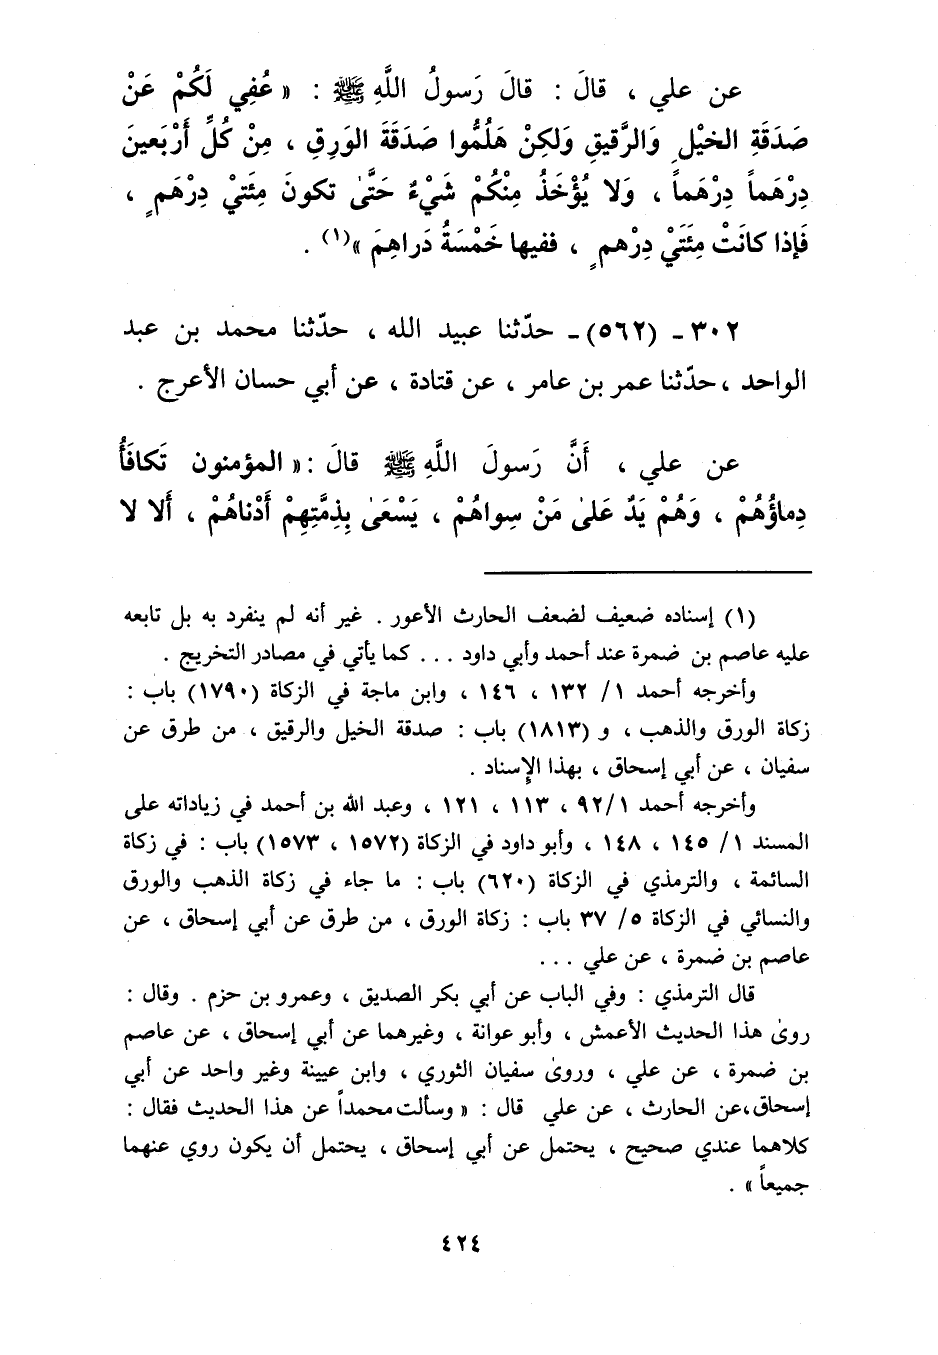 عن علي ، قالَ : قالَ رَسولُ اللَّهِ ﷺ : « عُفِي لَكُمْ عَنْ
صَدَقَةِ الخيْلِ وَالرَّقيقِ وَلكِنْ هَلُمُّوا صَدَقَةَ الوَرِقِ ، مِنْ كُلِّ أَرْبَعينَ
دِرْهَماً دِرْهَماً ، وَلا يُؤْخَذُ مِنْكُمْ شَيْءٌ حَتَّىٰ تكونَ مِئَتيْ دِرْهَمٍ ،
فَإِذا كانَتْ مِئَتَيْ دِرْهمٍ ، ففيها خَمْسَةُ دَراهِمَ »(١) .
٣٠٢ ـ (٥٦٢) ـ حدّثنا عبيد الله ، حدّثنا محمد بن عبد
الواحد ، حدّثنا عمر بن عامر ، عن قتادة ، عن أبي حسان الأعرج .
عن علي ، أَنَّ رَسولَ اللَّهِ ﷺ قالَ : « المؤمنون تَكافَأُ
دِماؤُهُمْ ، وَهُمْ يَدٌ عَلىٰ مَنْ سِواهُمْ ، يَسْعَىٰ بِذِمَّتِهِمْ أَدْناهُمْ ، أَلا لا
(١) إسناده ضعيف لضعف الحارث الأعور . غير أنه لم ينفرد به بل تابعه
عليه عاصم بن ضمرة عند أحمد وأبي داود ... كما يأتي في مصادر التخريج .
وأخرجه أحمد ١/ ١٣٢ ، ١٤٦ ، وابن ماجة في الزكاة (١٧٩٠) باب :
زكاة الورق والذهب ، و (١٨١٣) باب : صدقة الخيل والرقيق ، من طرق عن
سفيان ، عن أبي إسحاق ، بهذا الإسناد .
وأخرجه أحمد ١/ ٩٢ ، ١١٣ ، ١٢١ ، وعبد الله بن أحمد في زياداته على
المسند ١/ ١٤٥ ، ١٤٨ ، وأبو داود في الزكاة (١٥٧٢ ، ١٥٧٣) باب : في زكاة
السائمة ، والترمذي في الزكاة (٦٢٠) باب : ما جاء في زكاة الذهب والورق
والنسائي في الزكاة ٥/ ٣٧ باب : زكاة الورق ، من طرق عن أبي إسحاق ، عن
عاصم بن ضمرة ، عن علي ...
قال الترمذي : وفي الباب عن أبي بكر الصديق ، وعمرو بن حزم . وقال :
روىٰ هذا الحديث الأعمش ، وأبو عوانة ، وغيرهما عن أبي إسحاق ، عن عاصم
بن ضمرة ، عن علي ، وروىٰ سفيان الثوري ، وابن عيينة وغير واحد عن أبي
إسحاق،عن الحارث ، عن علي قال : « وسألت محمداً عن هذا الحديث فقال :
كلاهما عندي صحيح ، يحتمل عن أبي إسحاق ، يحتمل أن يكون روي عنهما
جميعاً » .
٤٢٤